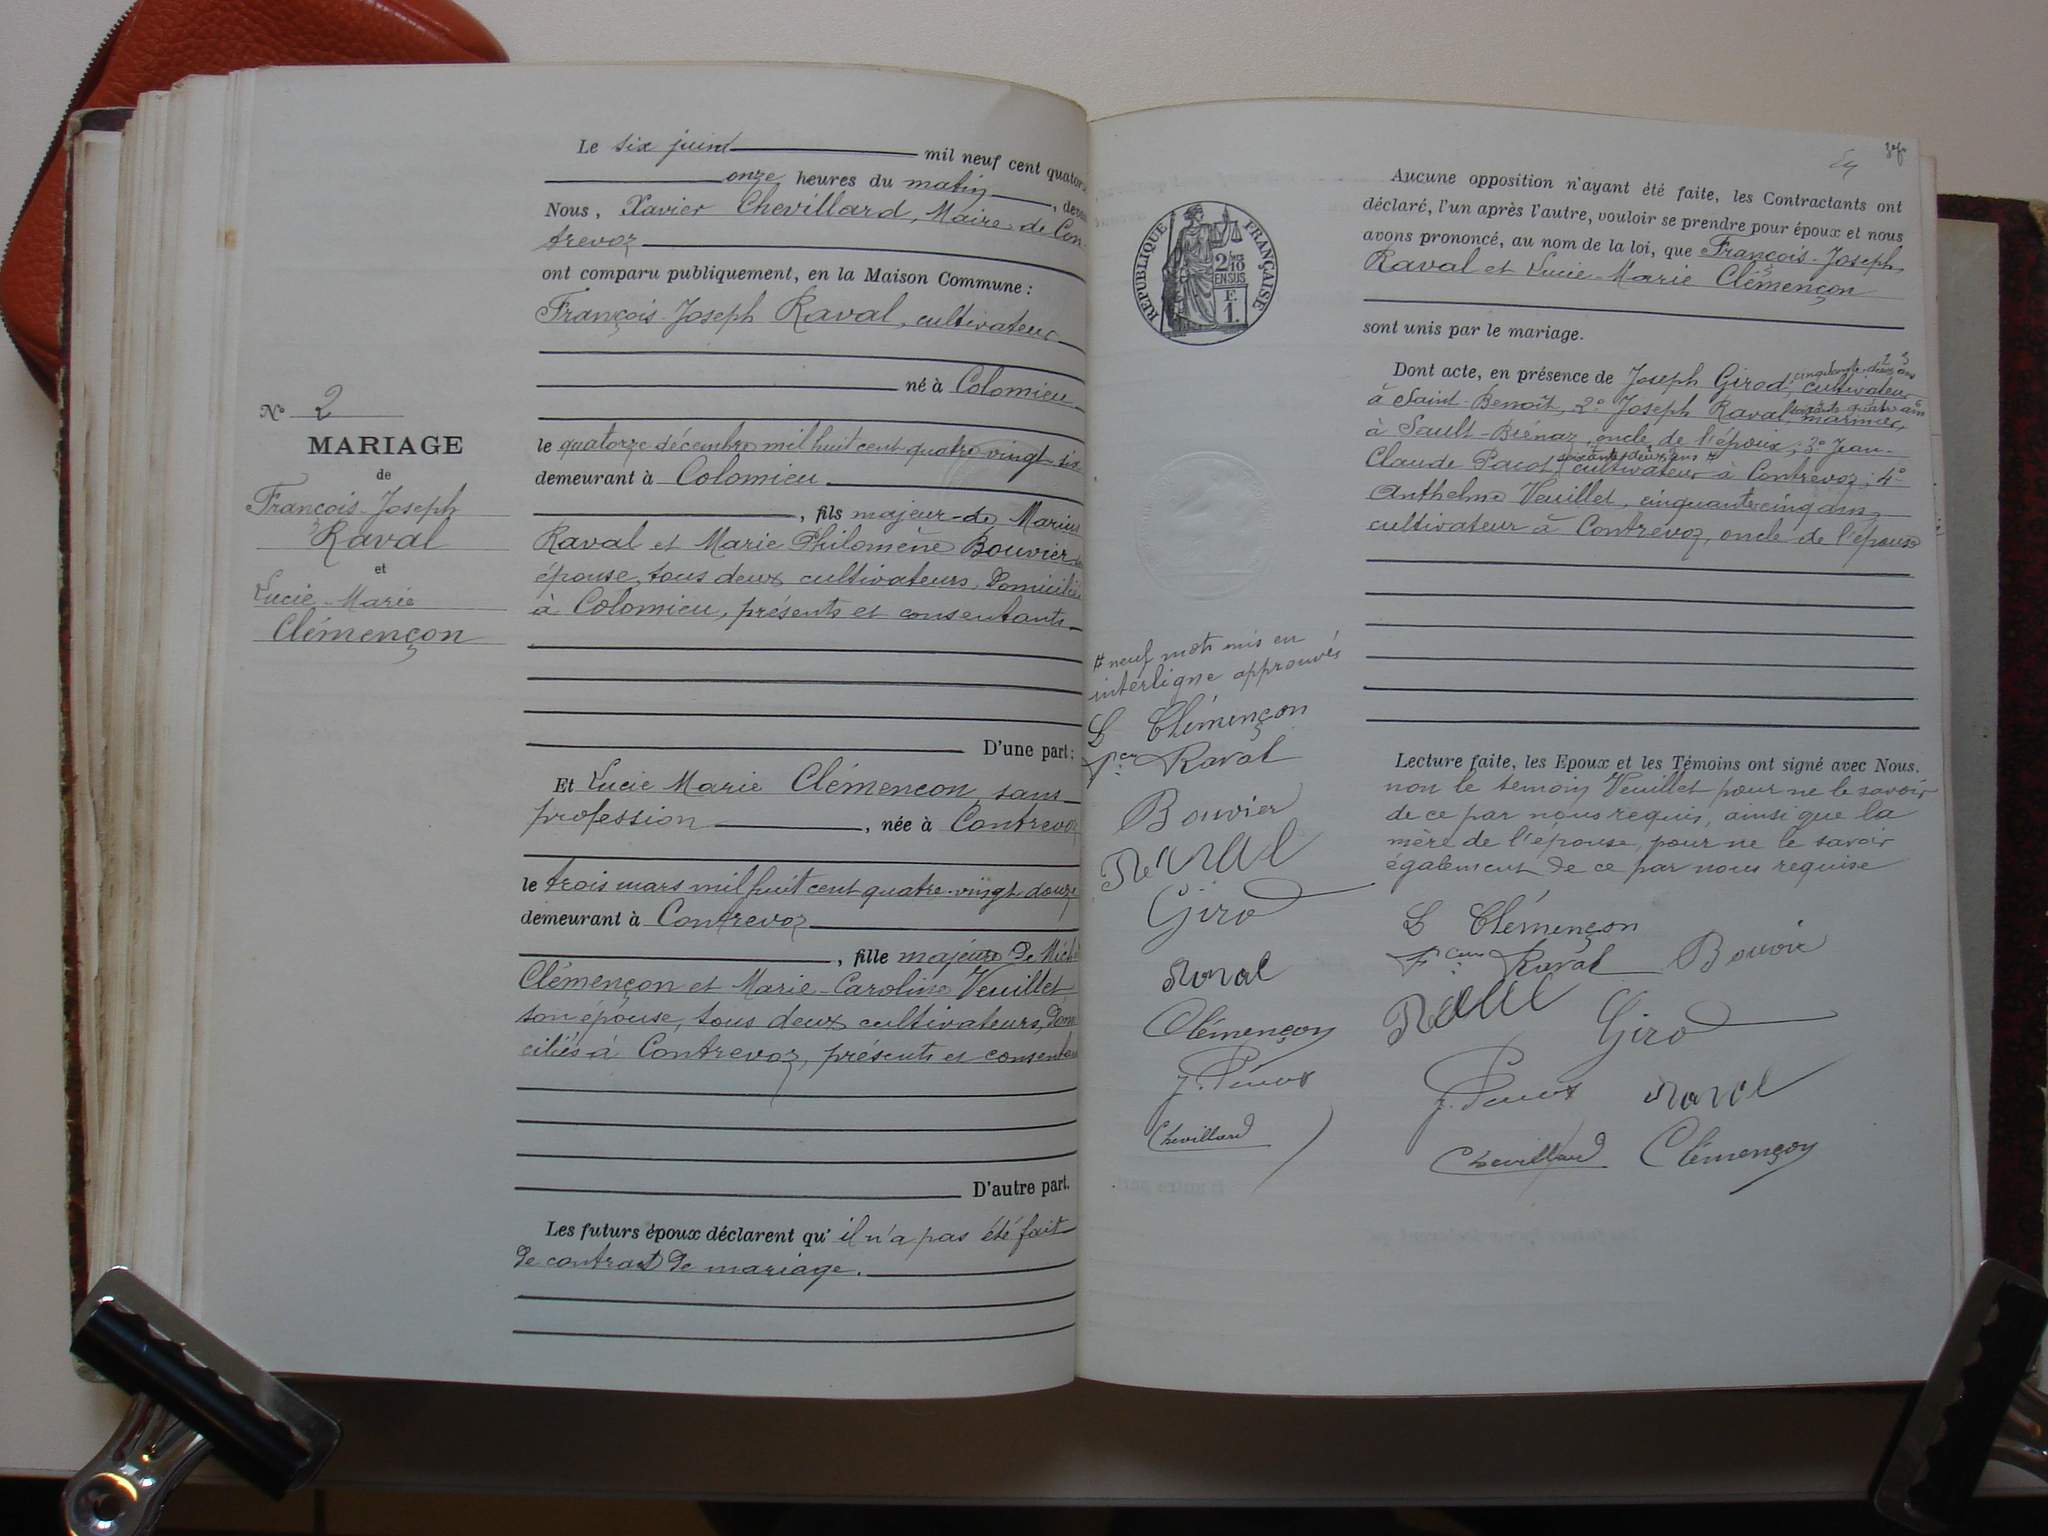 Le six juin mil neuf cent quator
onze heures du matin, deva
Nous, Xavier Chevillard, Maire de Con-
trevoz
ont comparu publiquement, en la Maison Commune :
François-Joseph Raval, cultivateur
né à Colomieu
le quatorze décembre mil huit cent quatre-vingt-six
demeurant à Colomieu
, fils majeur de Marius
Raval et Marie Philomène Bouvier
épouse, tous deux cultivateurs, domiciliés
à Colomieu, présents et consentants
D'une part ;
Et Lucie Marie Clémençon, sans
profession, née à Contrevoz
le trois mars mil huit cent quatre-vingt douze
demeurant à Contrevoz
, fille majeure de Mich
Clémençon et Marie-Caroline Veuillet
son épouse, tous deux cultivateurs, domi
ciliés à Contrevoz, présents et consentan
D'autre part.
Les futurs époux déclarent qu'il n'a pas été fait
de contrat de mariage.
N° 2
MARIAGE
de
François-Joseph
Raval
et
Lucie-Marie
Clémençon
RÉPUBLIQUE FRANÇAISE
2/10
EN SUS
F.
1.
# neuf mots mis en
interligne approuvés
L Clémençon
Raval
Bouvier
Raval
Giro
Raval
Clémençon
Chevillard
Aucune opposition n'ayant été faite, les Contractants ont
déclaré, l'un après l'autre, vouloir se prendre pour époux et nous
avons prononcé, au nom de la loi, que François-Joseph
Raval et Lucie-Marie Clémençon
sont unis par le mariage.
cinquante-deux ans
Dont acte, en présence de Joseph Girod, cultivateur
soixante quatre ans
à Saint-Benoît, 2° Joseph Raval, marinier,
à Sault-Brénaz, oncle de l'époux ; 3° Jean-
soixante-deux ans
Claude Pacot, cultivateur à Contrevoz ; 4°
Anthelme Veuillet, cinquante-cinq ans,
cultivateur à Contrevoz, oncle de l'épouse
Lecture faite, les Epoux et les Témoins ont signé avec Nous.
non le temoin Veuillet pour ne le savoir
de ce par nous requis, ainsi que la
mère de l'épouse, pour ne le savoir
également de ce par nous requise
L Clémençon
Raval Bouvie
Giro
Raval
Chevillard Clémençon